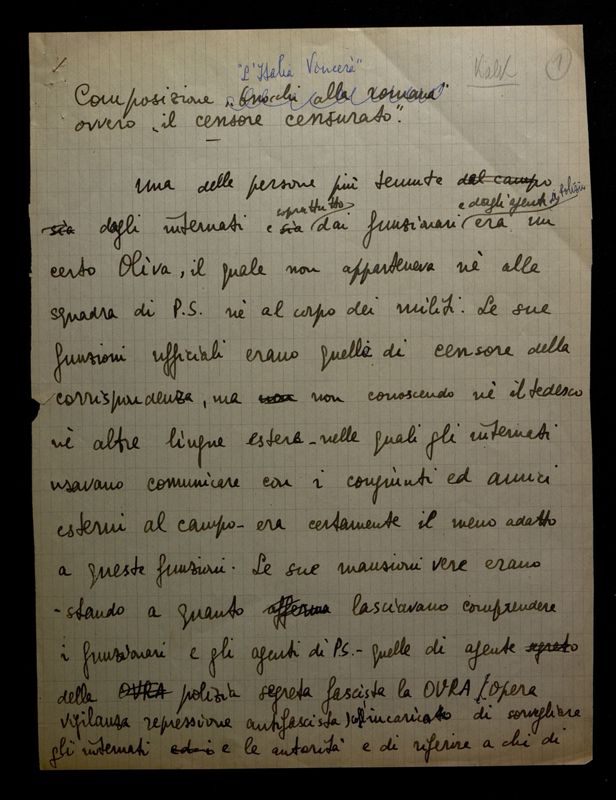 "L'Italia Vincerà"
Kalk
1
Composizione „Gnocchi alla romana"
ovvero „il censore censurato".
Una delle persone più temute dal campo
sia dagli internati e sia soprattutto dai funzionari e dagli agenti di polizia era un
certo Oliva, il quale non apparteneva nè alla
squadra di P.S. nè al corpo dei militi. Le sue
funzioni ufficiali erano quelle di censore della
corrispondenza, ma non non conoscendo nè il tedesco
nè altre lingue estere - nelle quali gli internati
usavano comunicare con i congiunti ed amici
esterni al campo - era certamente il meno adatto
a queste funzioni. Le sue mansioni vere erano
- stando a quanto afferma lasciavano comprendere
i funzionari e gli agenti di P.S. - quelle di agente segreto
della OVRA polizia segreta fascista la OVRA (Opera
vigilanza repressione antifascista) incaricato di sorvegliare
gli internati ed i e le autorità e di riferire a chi di